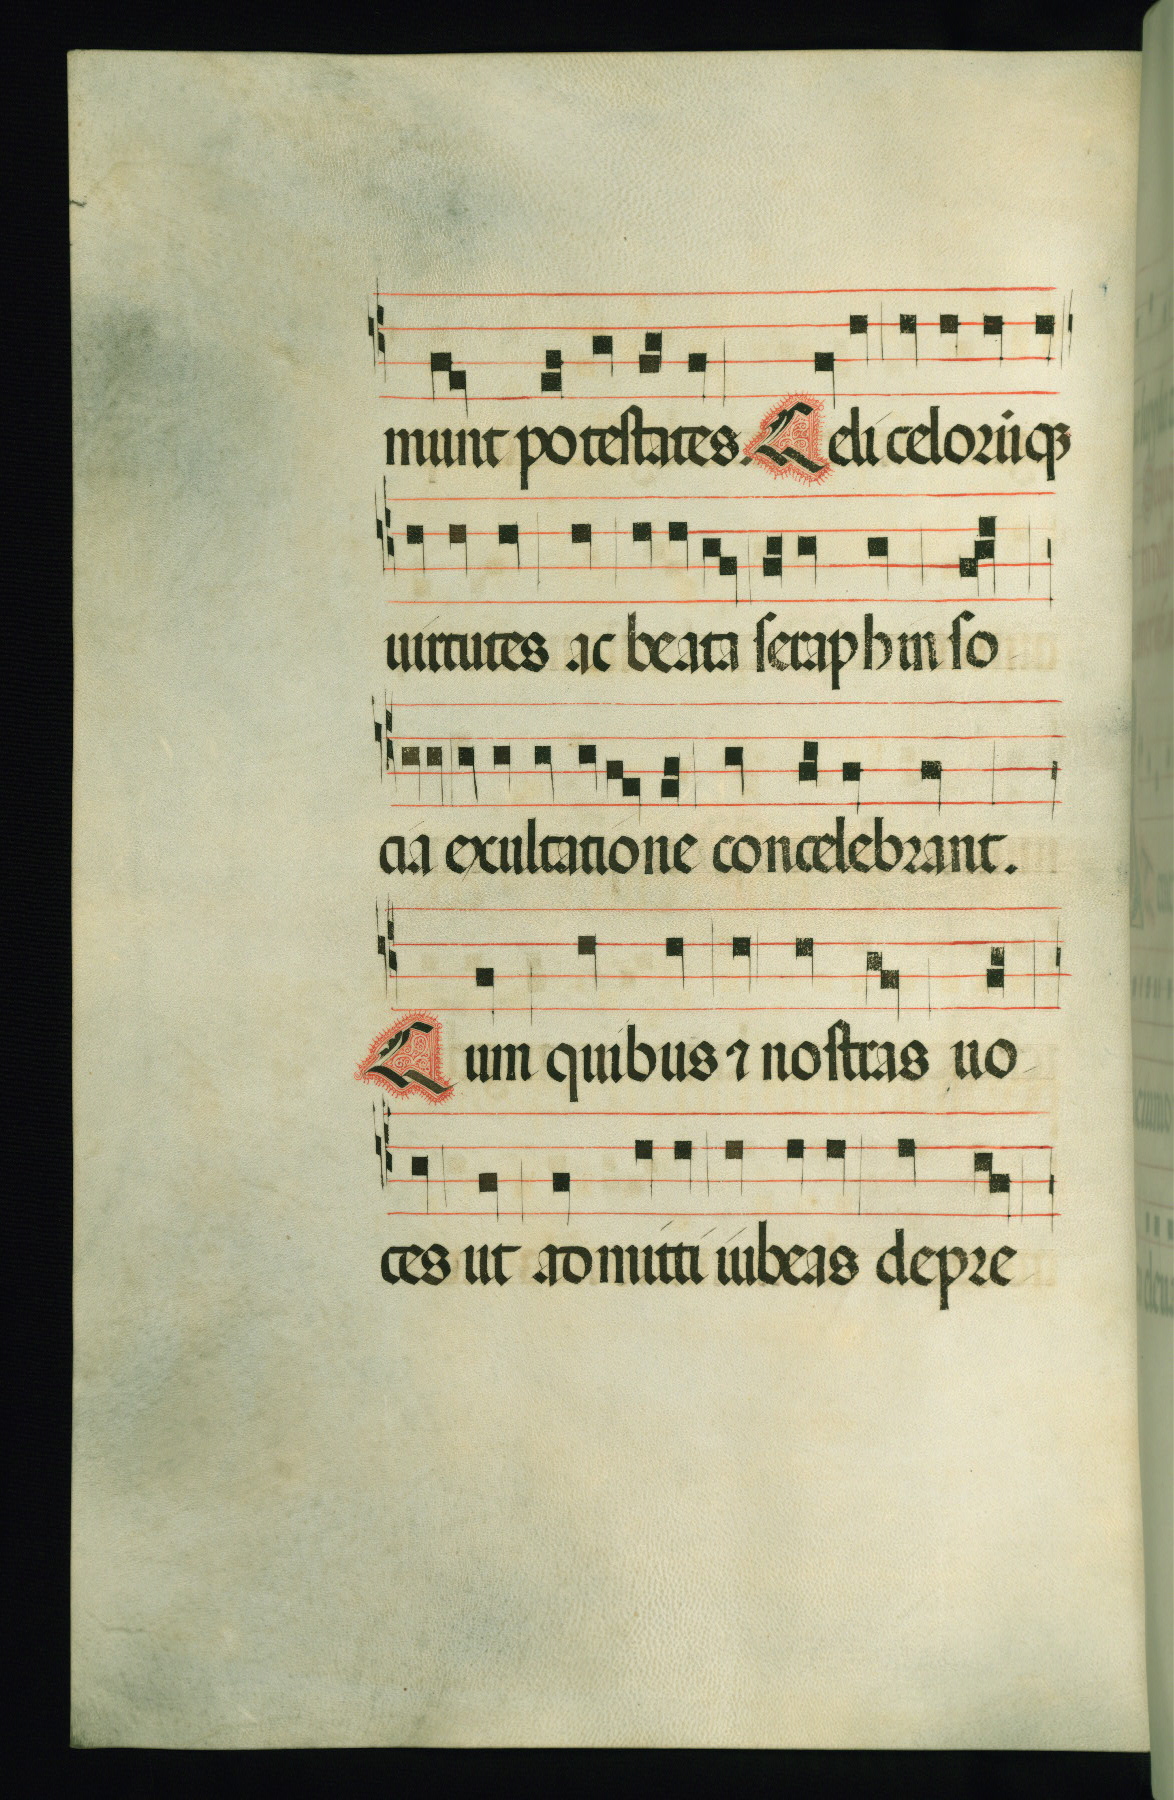 munt potestates. Celi celorūqꝫ
uirtutes ac beata seraphin so
cia exultatione concelebrant.
Cum quibus ⁊ nostras uo
ces ut admitti iubeas depre